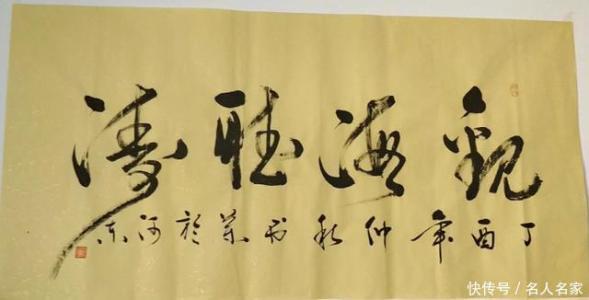 觀海聽濤
丁酉年仲秋书於河东
快传号 / 名人名家